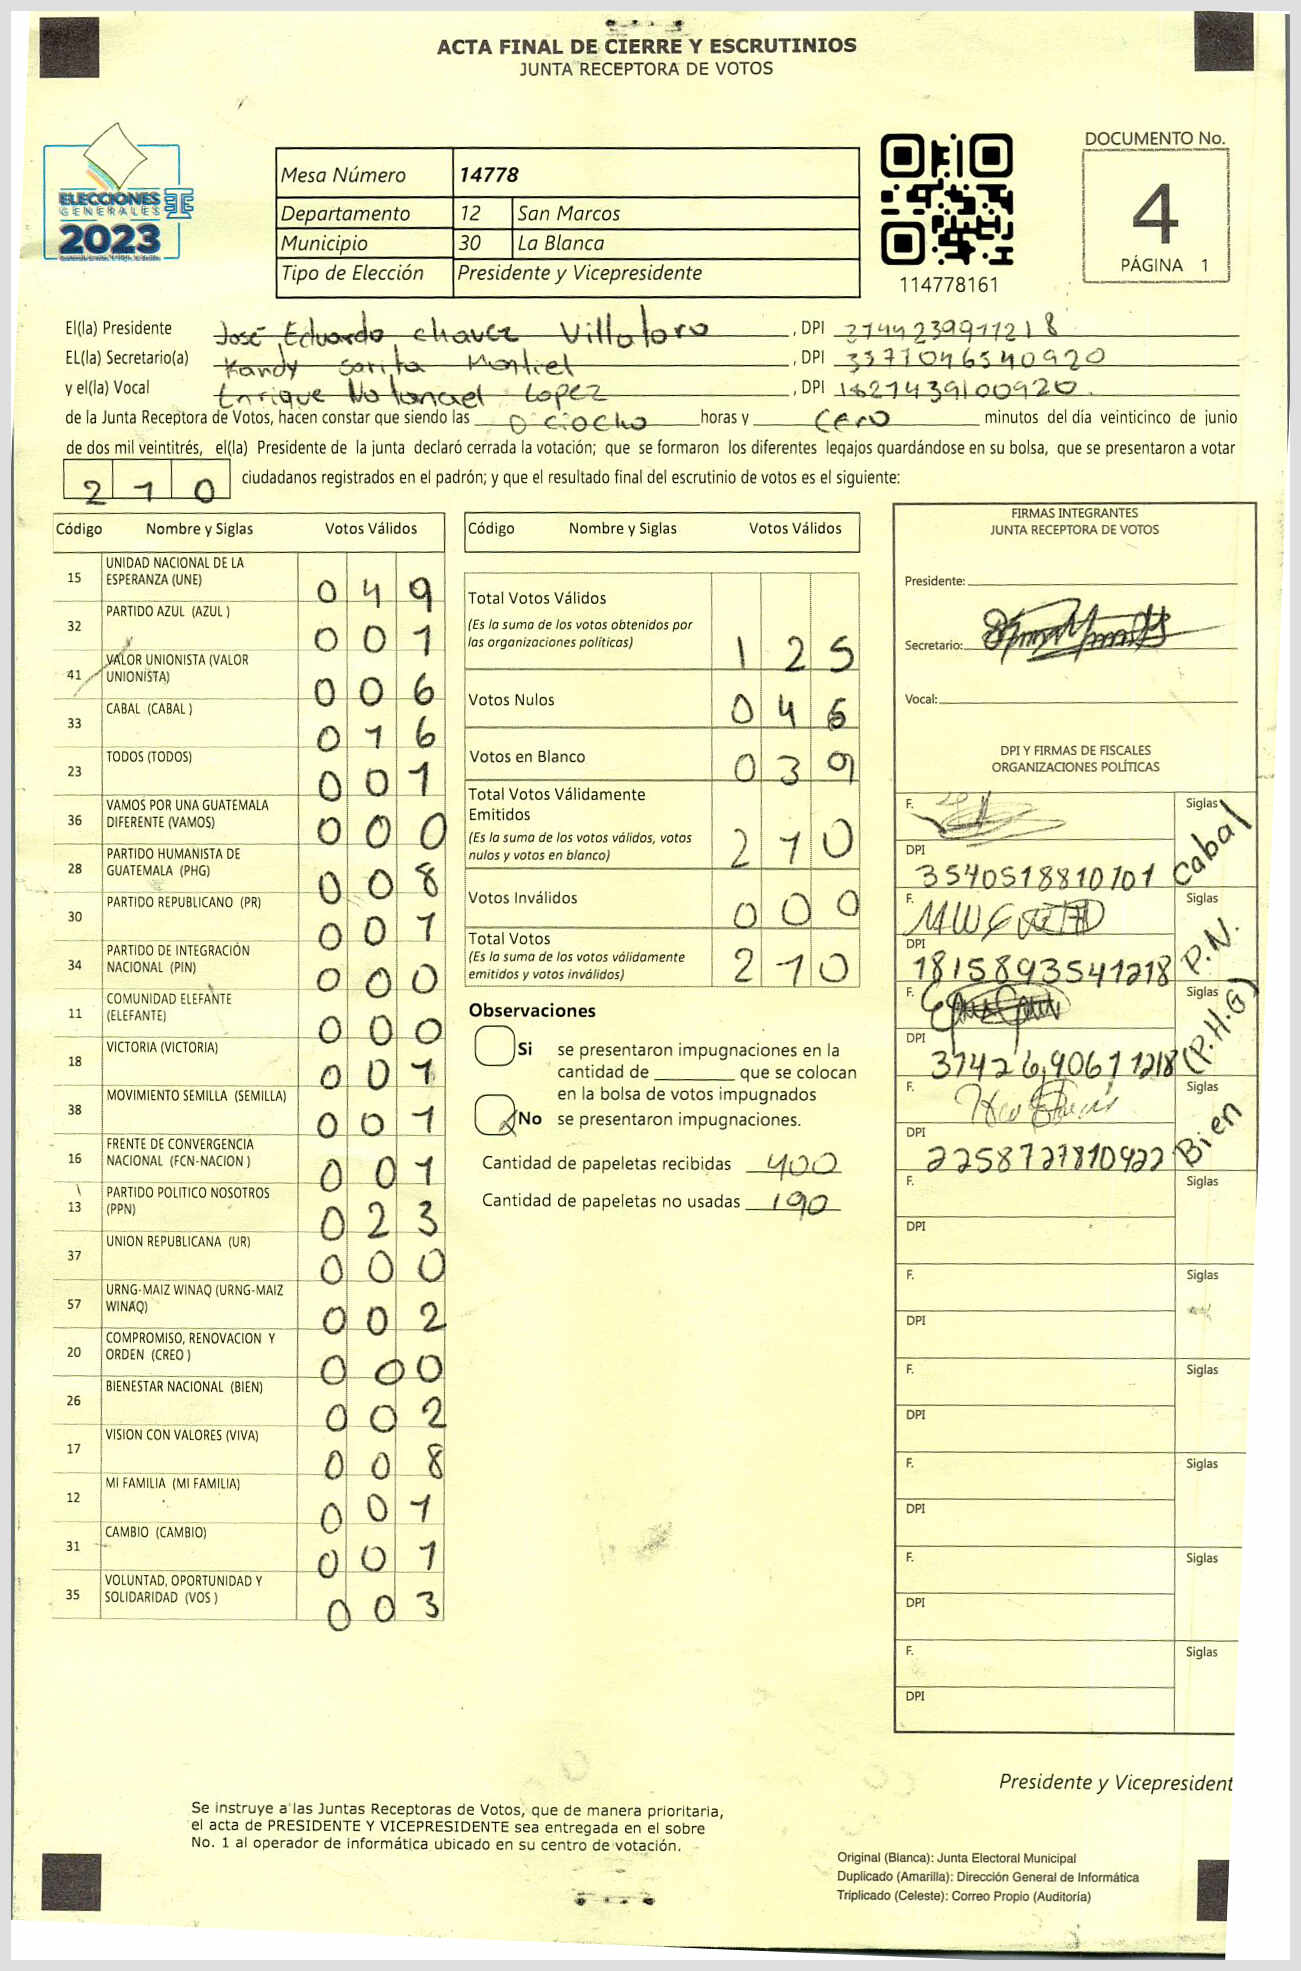 ACTA FINAL DE CIERRE Y ESCRUTINIOS
JUNTA RECEPTORA DE VOTOS
ELECCIONES
GENERALES
2023
Mesa Número 14778
Departamento 12 San Marcos
Municipio 30 La Blanca
Tipo de Elección Presidente y Vicepresidente
114778161
DOCUMENTO No.
4
PÁGINA 1
El(la) Presidente José Eduardo chavez Villatoro , DPI 2744239971218
EL(la) Secretario(a) Kandy Sarita Montiel , DPI 3371046540920
y el(la) Vocal Enrique Natanael Lopez , DPI 1827439100920.
de la Junta Receptora de Votos, hacen constar que siendo las Diciocho horas y Cero minutos del día veinticinco de junio
de dos mil veintitrés, el(la) Presidente de la junta declaró cerrada la votación; que se formaron los diferentes legajos guardándose en su bolsa, que se presentaron a votar
210 ciudadanos registrados en el padrón; y que el resultado final del escrutinio de votos es el siguiente:
Código Nombre y Siglas Votos Válidos
15 UNIDAD NACIONAL DE LA
ESPERANZA (UNE) 049
32 PARTIDO AZUL (AZUL ) 001
41 VALOR UNIONISTA (VALOR
UNIONISTA) 006
33 CABAL (CABAL ) 016
23 TODOS (TODOS) 001
36 VAMOS POR UNA GUATEMALA
DIFERENTE (VAMOS) 000
28 PARTIDO HUMANISTA DE
GUATEMALA (PHG) 008
30 PARTIDO REPUBLICANO (PR) 001
34 PARTIDO DE INTEGRACIÓN
NACIONAL (PIN) 000
11 COMUNIDAD ELEFANTE
(ELEFANTE) 000
18 VICTORIA (VICTORIA) 001
38 MOVIMIENTO SEMILLA (SEMILLA) 001
16 FRENTE DE CONVERGENCIA
NACIONAL (FCN-NACION ) 001
13 PARTIDO POLITICO NOSOTROS
(PPN) 023
37 UNION REPUBLICANA (UR) 000
57 URNG-MAIZ WINAQ (URNG-MAIZ
WINAQ) 002
20 COMPROMISO, RENOVACION Y
ORDEN (CREO ) 000
26 BIENESTAR NACIONAL (BIEN) 002
17 VISION CON VALORES (VIVA) 008
12 MI FAMILIA (MI FAMILIA) 001
31 CAMBIO (CAMBIO) 001
35 VOLUNTAD, OPORTUNIDAD Y
SOLIDARIDAD (VOS ) 003
Código Nombre y Siglas Votos Válidos
Total Votos Válidos
(Es la suma de los votos obtenidos por
las organizaciones políticas) 125
Votos Nulos 046
Votos en Blanco 039
Total Votos Válidamente
Emitidos
(Es la suma de los votos válidos, votos
nulos y votos en blanco) 210
Votos Inválidos 000
Total Votos
(Es la suma de los votos válidamente
emitidos y votos inválidos) 210
Observaciones
Si se presentaron impugnaciones en la
cantidad de ________ que se colocan
en la bolsa de votos impugnados
No se presentaron impugnaciones.
Cantidad de papeletas recibidas 400
Cantidad de papeletas no usadas 190
FIRMAS INTEGRANTES
JUNTA RECEPTORA DE VOTOS
Presidente:
Secretario:
Vocal:
DPI Y FIRMAS DE FISCALES
ORGANIZACIONES POLÍTICAS
F. Siglas Cabal
DPI 3540518810101
F. Siglas P.N.
DPI 1815893541218
F. Siglas (P.H.G)
DPI 3742690671218
F. Siglas Bien
DPI 2258727810922
F. Siglas
DPI
F. Siglas
DPI
F. Siglas
DPI
F. Siglas
DPI
F. Siglas
DPI
F. Siglas
DPI
Presidente y Vicepresident
Se instruye a las Juntas Receptoras de Votos, que de manera prioritaria,
el acta de PRESIDENTE Y VICEPRESIDENTE sea entregada en el sobre
No. 1 al operador de informática ubicado en su centro de votación.
Original (Blanca): Junta Electoral Municipal
Duplicado (Amarilla): Dirección General de Informática
Triplicado (Celeste): Correo Propio (Auditoría)